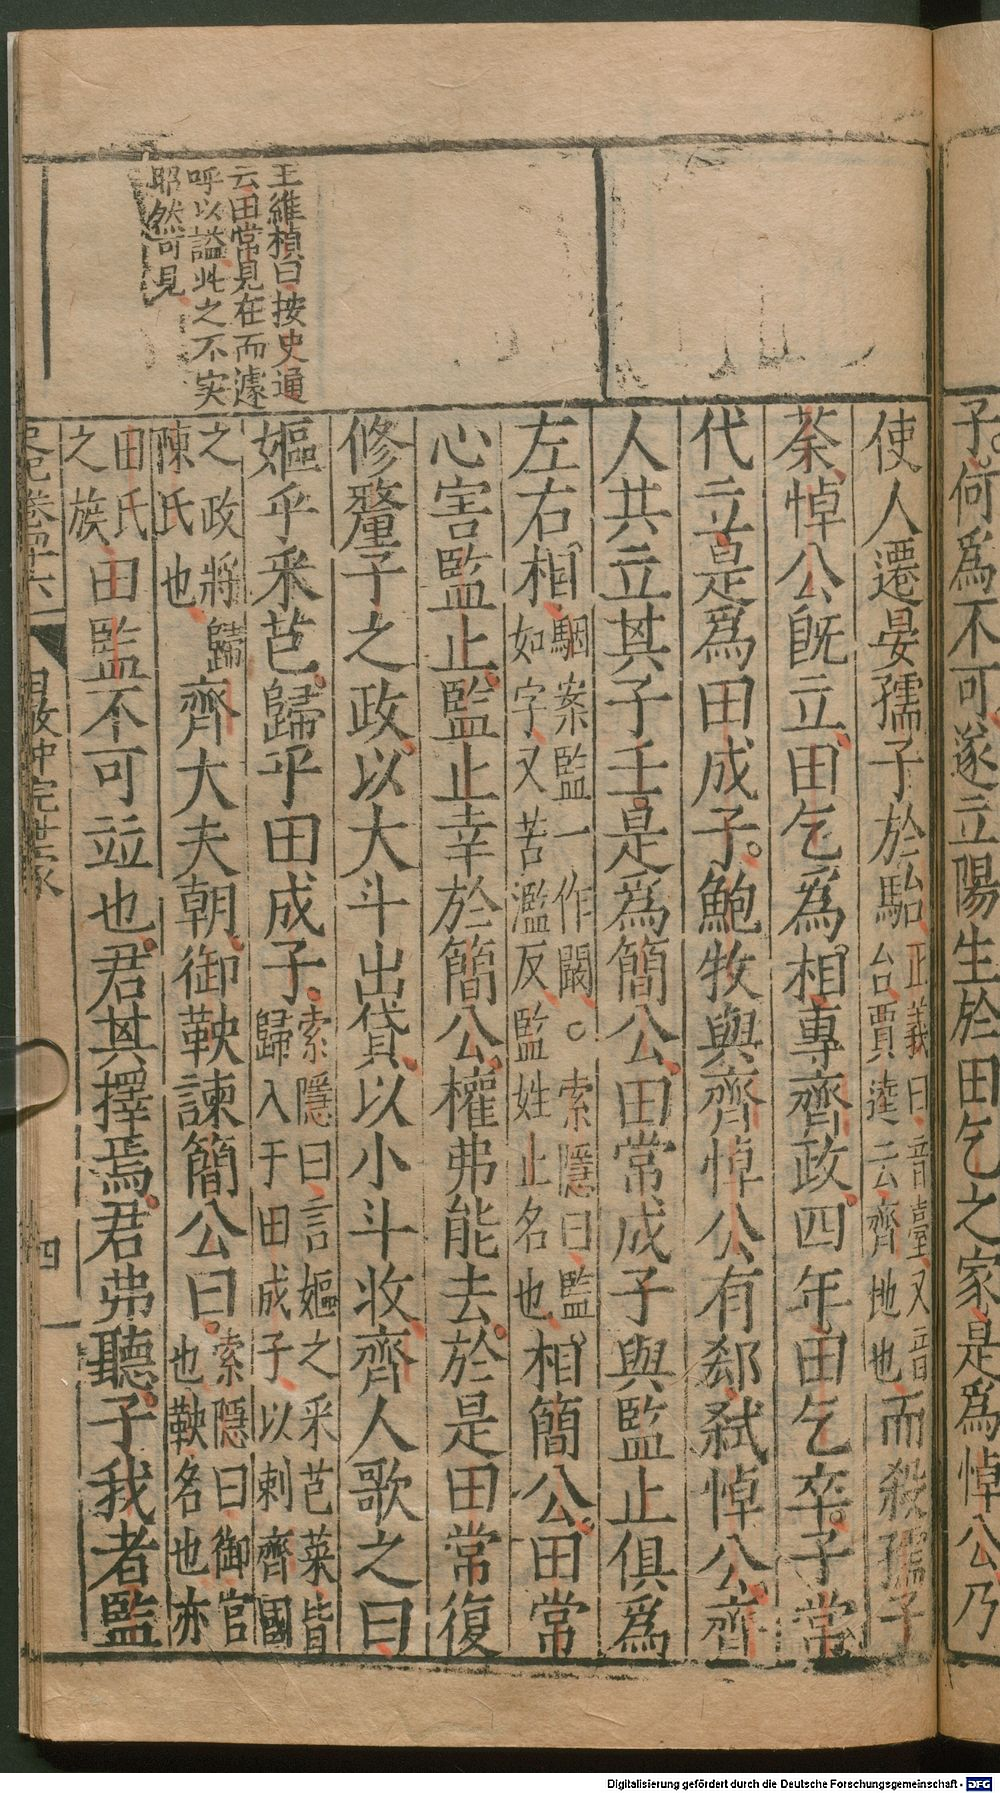 子何為不可遂立陽生於田乞之家是為悼公乃
使人遷晏孺子於駘正義曰音臺又音台賈逵云齊地也而殺孺子
荼悼公既立田乞為相專齊政四年田乞卒子常
代立是為田成子鮑牧與齊悼公有郄弒悼公齊
人共立其子壬是為簡公田常成子與監止俱為
左右相駰案監一作闞○索隱曰監如字又苦濫反監姓止名也相簡公田常
心害監止監止幸於簡公權弗能去於是田常復
修釐子之政以大斗出貸以小斗收齊人歌之曰
嫗乎采芑歸乎田成子索隱曰言嫗之采芑菜皆歸入于田成子以刺齊國
之政將歸陳氏也齊大夫朝御鞅諫簡公曰索隱曰御官也鞅名也亦
田氏之族田監不可並也君其擇焉君弗聽子我者監
王維楨曰按史通
云田常見在而遽
呼以謚此之不实
昭然可見
史記卷四十六
田敬仲完世家
四
Digitalisierung gefördert durch die Deutsche Forschungsgemeinschaft - DFG